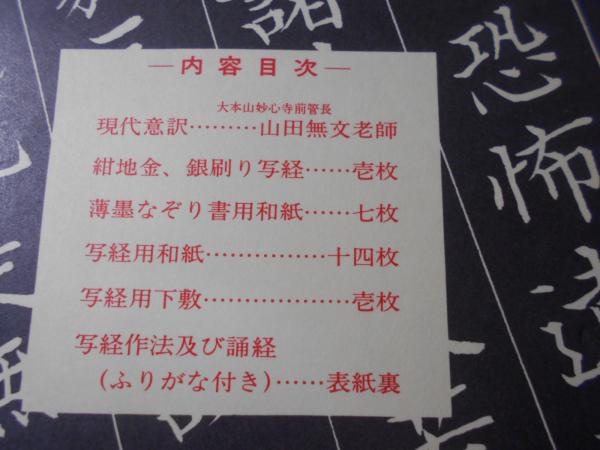 —内容目次—
大本山妙心寺前管長
現代意訳………山田無文老師
紺地金、銀刷り写経……壱枚
薄墨なぞり書用和紙……七枚
写経用和紙……………十四枚
写経用下敷………………壱枚
写経作法及び誦経
(ふりがな付き)……表紙裏
恐怖遠
諸